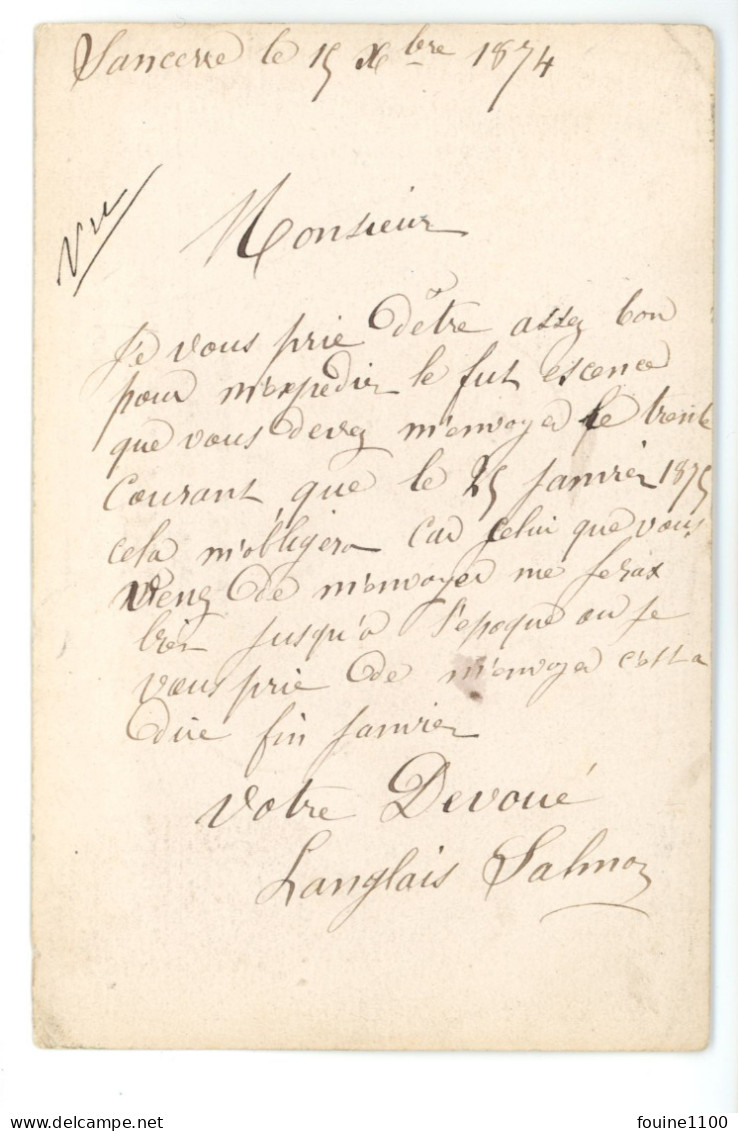 Sancerre le 15 Xbre 1874
Vu
Monsieur
Je vous prie d'être assez bon
pour m'expédier le fut escence
que vous devez m'envoyer le trente
Courant que le 25 Janvier 1875
cela m'obligera Car celui que vous
venez de m'envoyer me ferax
bien jusqu'a l'epoque ou je
vous prie de m'envoyer c'est a
dire fin Janvier
Votre Devoué
Langlais
Delcampe.net
fouine1100